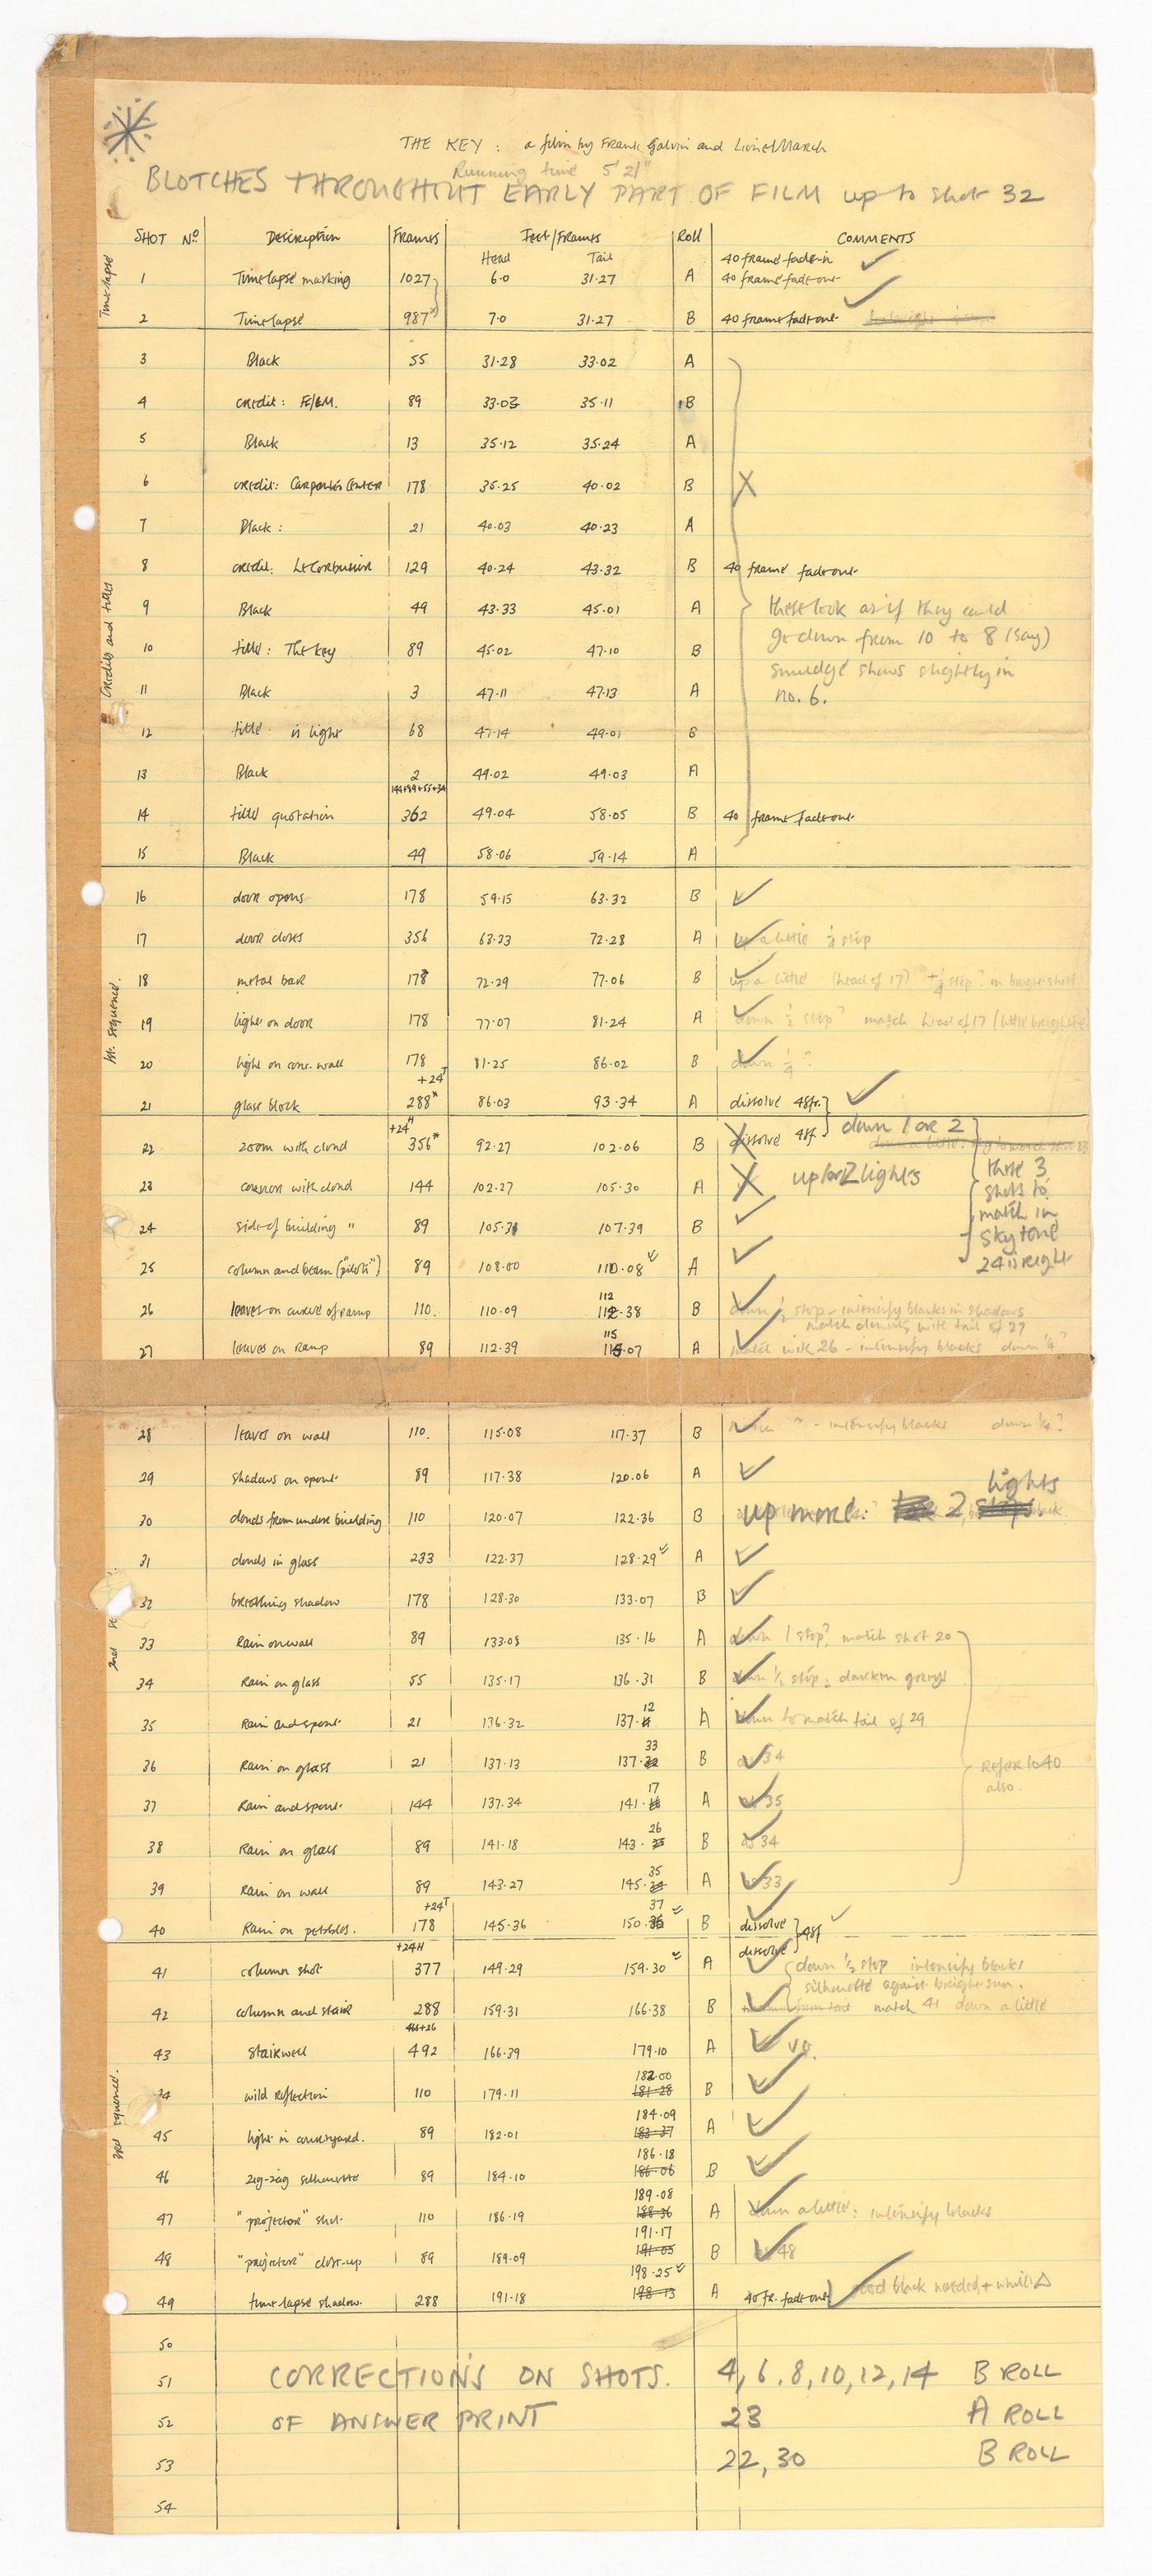 THE KEY: a film by Frank Galvin and Lionel March
Running time 5'21"
BLOTCHES THROUGHOUT EARLY PART OF FILM up to shot 32
SHOT Nº Description Frames Feet/Frames Roll COMMENTS
Head Tail 40 frame fade-in
Time lapse
1 Time lapse marking 1027 6.0 31.27 A 40 frame fade-out
2 Time lapse 987 7.0 31.27 B 40 frame fade-out
3 Black 55 31.28 33.02 A
4 credit: 89 33.03 35.11 B
5 Black 13 35.12 35.24 A
6 credit: Carpenter Center 178 35.25 40.02 B
7 Black: 21 40.03 40.23 A
Credits and titles
8 credit: Le Corbusier 129 40.24 43.32 B 40 frame fade-out
9 Black 49 43.33 45.01 A these look as if they could
10 title: The Key 89 45.02 47.10 B go down from 10 to 8 (say)
smudge shows slightly in
11 Black 3 47.11 47.13 A no. 6.
12 title: is light 68 47.14 49.01 B
13 Black 2 49.02 49.03 A
144+89+55+34
14 title quotation 362 49.04 58.05 B 40 frame fade-out
15 Black 49 58.06 59.14 A
16 door opens 178 59.15 63.32 B
17 door closes 356 63.33 72.28 A up a little ¼ stop
18 metal bar 178 72.29 77.06 B up a little (head of 17) +¼ stop? on bright shot
1st. sequence.
19 light on door 178 77.07 81.24 A down ½ stop? match head of 17 (little brighter
20 light on conc. wall 178 81.25 86.02 B down ¼?
+24T
21 glass block 288* 86.03 93.34 A dissolve 48fr.
+24H down 1 or 2
22 zoom with cloud 356* 92.27 102.06 B dissolve 48f
23 cornice with cloud 144 102.27 105.30 A up 1 or 2 lights
these 3
shots to
match in
sky tone
24 is right
24 side of building " 89 105.31 107.39 B
25 column and beam ("piloti") 89 108.00 110.08 A
112
26 leaves on curve of ramp 110. 110.09 112.38 B down ½ stop - intensify blacks in shadows
match density with tail of 27
115
27 leaves on ramp 89 112.39 115.07 A match with 26 - intensify blacks down ¼?
28 leaves on wall 110. 115.08 117.37 B " - intensify blacks down ¼?
29 shadows on spout 89 117.38 120.06 A
lights
30 clouds from under building 110 120.07 122.36 B up more: 2
31 clouds in glass 233 122.37 128.29 A
32 breathing shadow 178 128.30 133.07 B
2nd
33 Rain on wall 89 133.08 135.16 A down 1 stop? match shot 20
34 Rain on glass 55 135.17 136.31 B down ½ stop: darken greys
12
35 Rain and spout 21 136.32 137. A down to match tail of 29
33
36 Rain on glass 21 137.13 137.32 B as 34
Refer to 40
also.
17
37 Rain and spout 144 137.34 141.16 A as 35
26
38 Rain on glass 89 141.18 143.25 B as 34
35
39 Rain on wall 89 143.27 145.34 A as 33
+24T 37
40 Rain on pebbles. 178 145.36 150.36 B dissolve 48f
+24H dissolve
41 column shot 377 149.29 159.30 A down ½ stop intensify blacks
silhouette against bright sun.
42 column and stair 288 159.31 166.38 B match 41 down a little
466+26
43 Stairwell 492 166.39 179.10 A v.g.
182.00
44 wild reflection 110 179.11 181.28 B
184.09
45 light in courtyard. 89 182.01 183.37 A
3rd sequence.
186.18
46 zig-zag silhouette 89 184.10 186.06 B
189.08
47 "projector" shot 110 186.19 188.36 A down a little: intensify blacks
191.17
48 "projector" close-up 89 189.09 191.05 B as 48
198.25
49 time lapse shadow 288 191.18 198.13 A 40 fr. fade-out good black needed + white Δ
50
51 CORRECTIONS ON SHOTS. 4, 6, 8, 10, 12, 14 B ROLL
52 OF ANSWER PRINT 23 A ROLL
53 22, 30 B ROLL
54